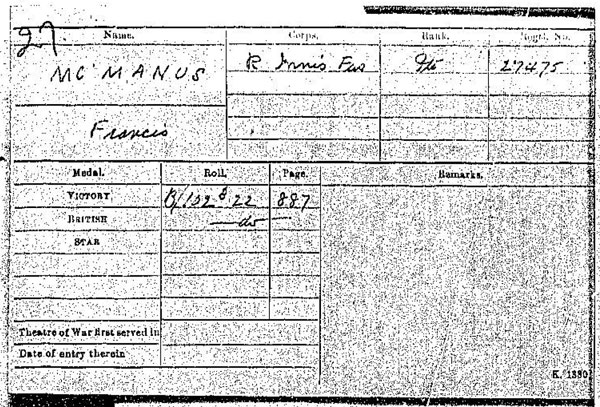 27
Name. Corps. Rank. Regtl. No.
MC MANUS R Innis Fus Pte 27475
Francis
Medal. Roll. Page. Remarks.
VICTORY B/102 B 22 887
BRITISH — do —
STAR
Theatre of War first served in
Date of entry therein
K. 1380